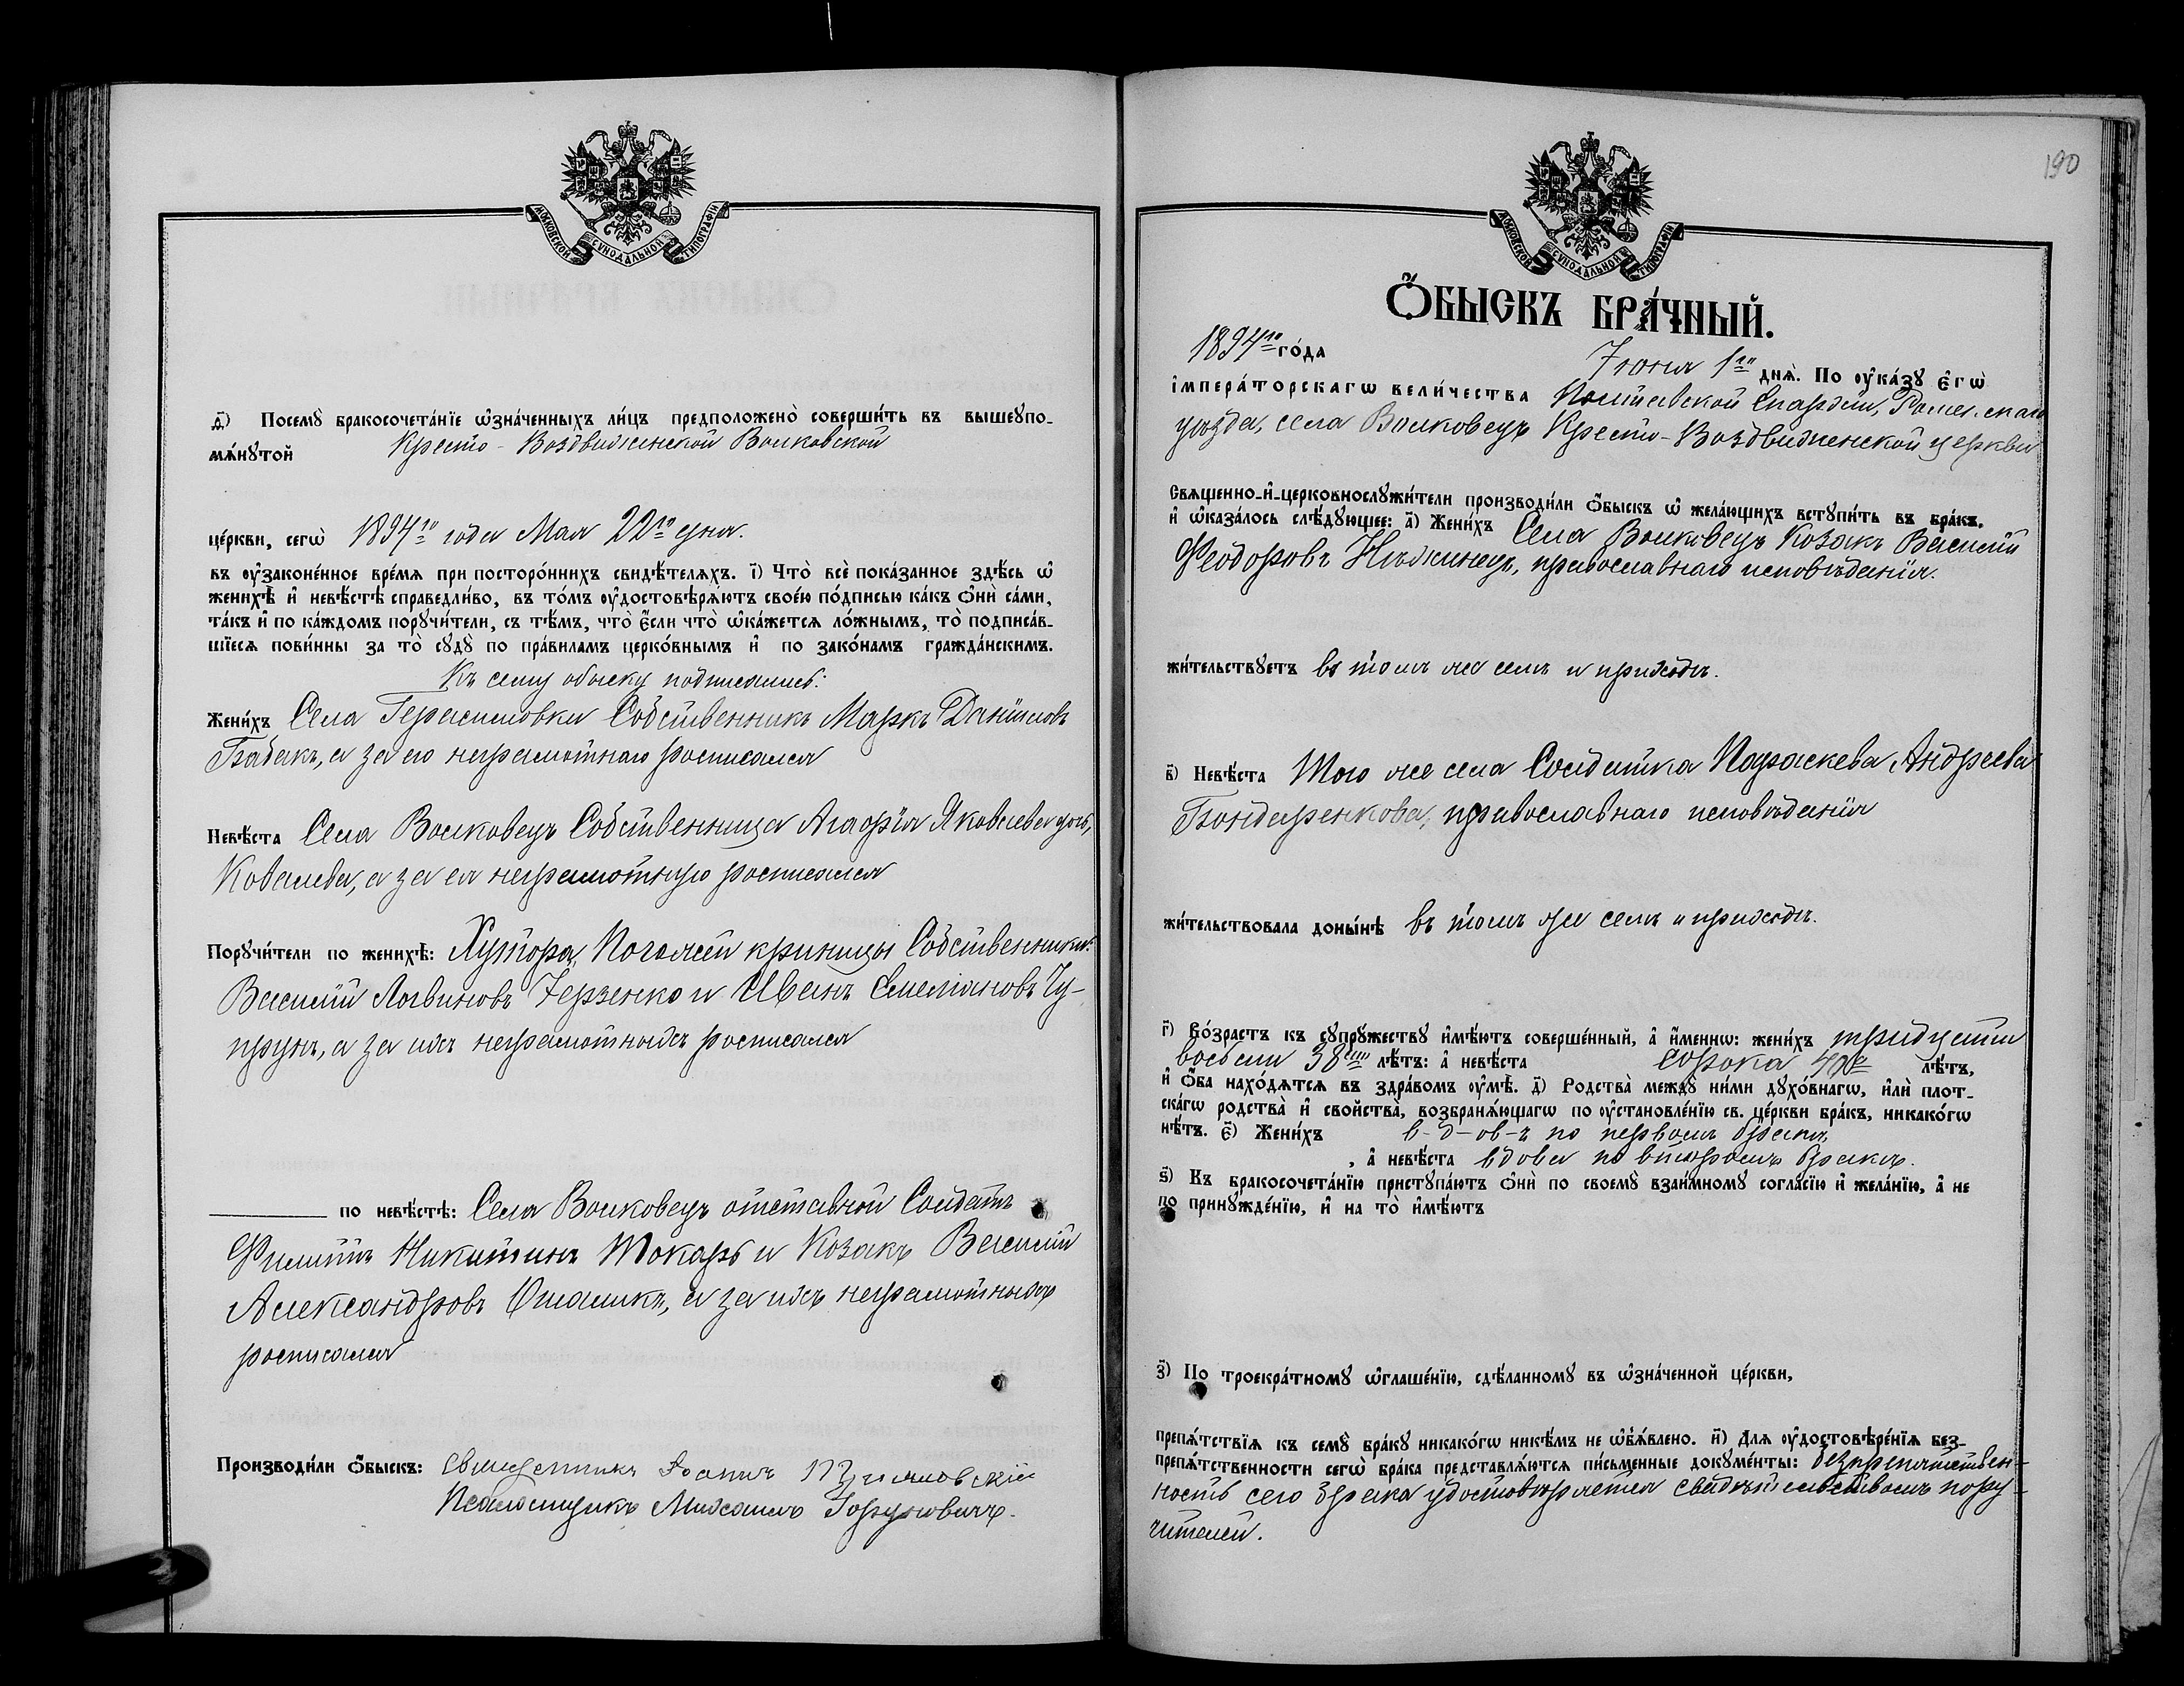 МОСКОВСКОЙ СѴНОДАЛЬНОЙ ТИПОГРАФІИ
д҃і) Посемꙋ̀ бракосочета́нїе ѡ҆зна́ченныхъ ли́цъ предположено̀ соверши́ть въ вышеꙋпо-
мѧ́нꙋтой Кресто-Воздвиженской Волковской
це́ркви, сегѡ̀ 1894го года Мая 22го дня.
въ ᲂу҆законе́нное вре́мѧ при посторо́ннихъ свидѣ́телѧхъ. і҃) Что̀ всѐ пока́занное здѣ́сь ѡ҆
женихѣ̀ и҆ невѣ́стѣ справедли́во, въ то́мъ ᲂу҆достовѣрѧ́ютъ свое́ю по́дписью ка́къ ѻ҆нѝ са́ми,
та́къ и҆ по ка́ждомъ порꙋчи́тели, съ тѣ́мъ, что̀ є҆́сли что̀ ѡ҆ка́жетсѧ ло́жнымъ, то̀ подписа́в-
шїесѧ пови́нны за то̀ сꙋдꙋ̀ по пра́виламъ церко́внымъ и҆ по зако́намъ гражда́нскимъ.
Къ сему обыску подписались:
Жени́хъ Села Герасимовки Собственникъ Маркъ Даніиловъ
Бабакъ, а за его неграмотнаго росписался
Невѣ́ста Села Волковецъ Собственница Агафія Яковлева дочь,
Ковалева, а за ея неграмотную росписался
Порꙋчи́тели по женихѣ̀: Хутора, Погожей криницы Собственники:
Василій Логвиновъ Герзенко и Иванъ Емеліановъ Чу-
прунъ, а за ихъ неграмотныхъ росписался
по невѣ́стѣ: Села Волковецъ отставной Солдатъ
Филиппъ Никитинъ Токарь и Козакъ Василій
Александровъ Ошаликъ, а за ихъ неграмотныхъ
росписался
Производи́ли ѻ҆́быскъ: Священникъ Іоаннъ
Псаломщикъ Михаилъ Горуновичъ.
190
МОСКОВСКОЙ СѴНОДАЛЬНОЙ ТИПОГРАФІИ
Ѻ҆́БЫСКЪ БРА́ЧНЫЙ.
1894го го́да Іюня 1го днѧ̀. По ᲂу҆ка́зꙋ є҆гѡ̀
и҆мпера́торскагѡ вели́чества Полтавской Епархіи, Ромен.скаго
уѣзда, села Волковецъ Кресто-Воздвиженской церкви
Свѧщенно-и҆-церковнослꙋжи́тели производи́ли ѻ҆́быскъ ѡ҆ жела́ющихъ встꙋпи́ть въ бра́къ,
и҆ ѡ҆каза́лось слѣ́дꙋющее: а҃) Жени́хъ Села Волковецъ Козакъ Василій
Феодоровъ Нѣжинецъ, православнаго исповѣданія.
жи́тельствꙋетъ въ томъ же селѣ и приходѣ.
в҃) Невѣ́ста Того же села Солдатка Параскева Андреева
Бондаренкова, православнаго исповѣданія
жи́тельствовала доны́нѣ въ томъ же селѣ и приходѣ.
г҃) Во́зрастъ къ сꙋпрꙋ́жествꙋ и҆мѣ́ютъ соверше́нный, а҆ и҆́меннѡ: жени́хъ тридцати
восьми 38ми лѣ́тъ: а҆ невѣ́ста сорока 40а лѣ́тъ,
и҆ ѻ҆́ба нахо́дѧтсѧ въ здра́вомъ ᲂу҆мѣ̀. д҃) Родства̀ междꙋ̀ ни́ми дꙋхо́внагѡ, и҆лѝ плот-
ска́гѡ родства̀ и҆ свойства̀, возбранѧ́ющагѡ по ᲂу҆становле́нїю св. це́ркви бра́къ, никако́гѡ
нѣ́тъ. є҃) Жени́хъ в-д-ов-ъ по первомъ бракѣ,
, а҆ невѣ́ста вдова по второмъ бракѣ.
ѕ҃) Къ бракосочета́нїю пристꙋпа́ютъ ѻ҆нѝ по своемꙋ̀ взаи́мномꙋ согла́сїю и҆ жела́нїю, а҆ не
по принꙋжде́нїю, и҆ на то̀ и҆мѣ́ютъ
з҃) По троекра́тномꙋ ѡ҆глаше́нїю, сдѣ́ланномꙋ въ ѡ҆зна́ченной це́ркви,
препѧ́тствїѧ къ семꙋ̀ бра́кꙋ никако́гѡ никѣ́мъ не ѡ҆б̾ѧ́влено. и҃) Для ᲂу҆достовѣре́нїѧ без-
препѧ́тственности сегѡ̀ бра́ка представлѧ́ютсѧ пи́сьменные докꙋме́нты: безпрепятствен-
ность сего брака удостовѣряется свидѣтельствомъ пору-
чителей.